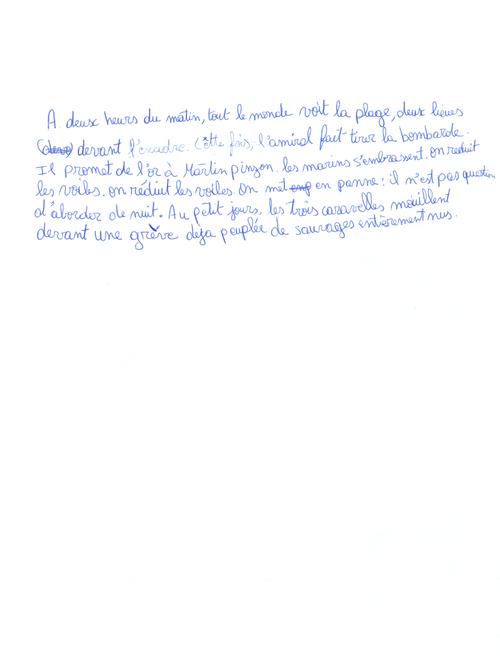 A deux heurs du matin, tout le monde voit la plage, deux lieues
devant l'escadre. Cette fois, l'amiral fait tirer la bombarde.
Il promet de l'or à Martin pinzon. les marins s'embrassent. on réduit
les voiles. on réduit les voiles. On met en panne : il n'est pas question
d'aborder de nuit. Au petit jours, les trois caravelles mouillent
devant une grève deja peuplée de sauvages entièrement nus.